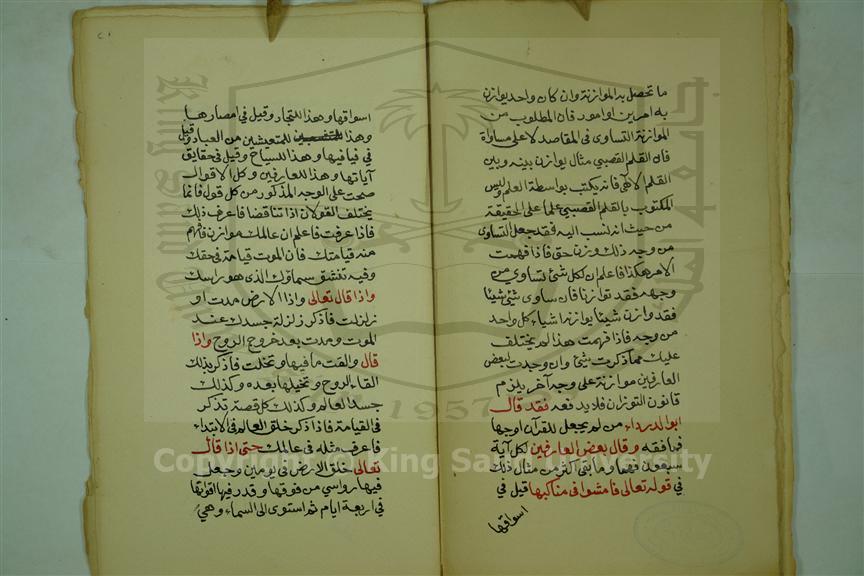 ما تحصل به الموازنة وان كان واحد يوازن
به امرين او امور فان المطلوب من
الموازنة التساوى فى المقاصد لا على مساواة
فان القلم القصبي مثال يوازن بينه وبين
القلم الالهى فانه يكتب بواسطة العلم وليس
المكتوب بالقلم القصبي علما على الحقيقة
من حيث انه لنسب اليه فقد جعل التساوى
من وجه ذلك وزن حق فاذا فهمت
الامر هكذا فاعلم ان لكل شئ تساوى من
وجهه فقد توازنا فان ساوى شئ شيئا
فقد وازن شيئا يوازنه اشياء كل واحد
من وجه فاذا فهمت هذا لم يختلف
عليك مهما ذكرت شئ وان وجدت لبعض
العارفين موازنة على وجه آخر يلزم
قانون التوزان فلا يدفعه فقد قال
ابو الدرداء من لم يجعل للقرآن اوجها
فما فقه وقال بعض العارفين لكل آية
سبعون فهما وما بقى اكثر من مثال ذلك
في قوله تعالى فامشوا فى مناكبها قيل في
اسواقها
اسواقها وهذا للتجار وقيل فى امصارها
وهذا للمتعيشين من العباد وقيل
في فيافيها وهذا للسياح وقيل فى حقايق
آياتها وهذا للعارفين وكل الاقوال
صحت على الوجه المذكور من كل قول فانما
يختلف القولان اذا تناقضا فاعرف ذلك
فاذا عرفت فاعلم ان عالمك موازن فافهم
منه قيامتك فان الموت قيامة فى حقك
وفيه تنشق سماؤك الذى هو راسك
واذا قال تعالى واذا الارض مدت او
زلزلت فاذكر زلزلة جسدك عند
الموت ومدت بعد خروج الروح واذا
قال والقت ما فيها وتخلت فاذكر بذلك
القاء الروح وتخيلها بعده وكذلك
جسد العالم وكذلك كل قصة تذكر
فى القيامة فاذا ذكر خلق العالم فى الابتداء
فاعرف مثله فى عالمك حتى اذا قال
تعالى خلق الارض فى يومين وجعل
فيها رواسي من فوقها وقدر فيها اقواتها
فى اربعة ايام ثم استوى الى السماء وهى
Copyright © King Saud University
1957